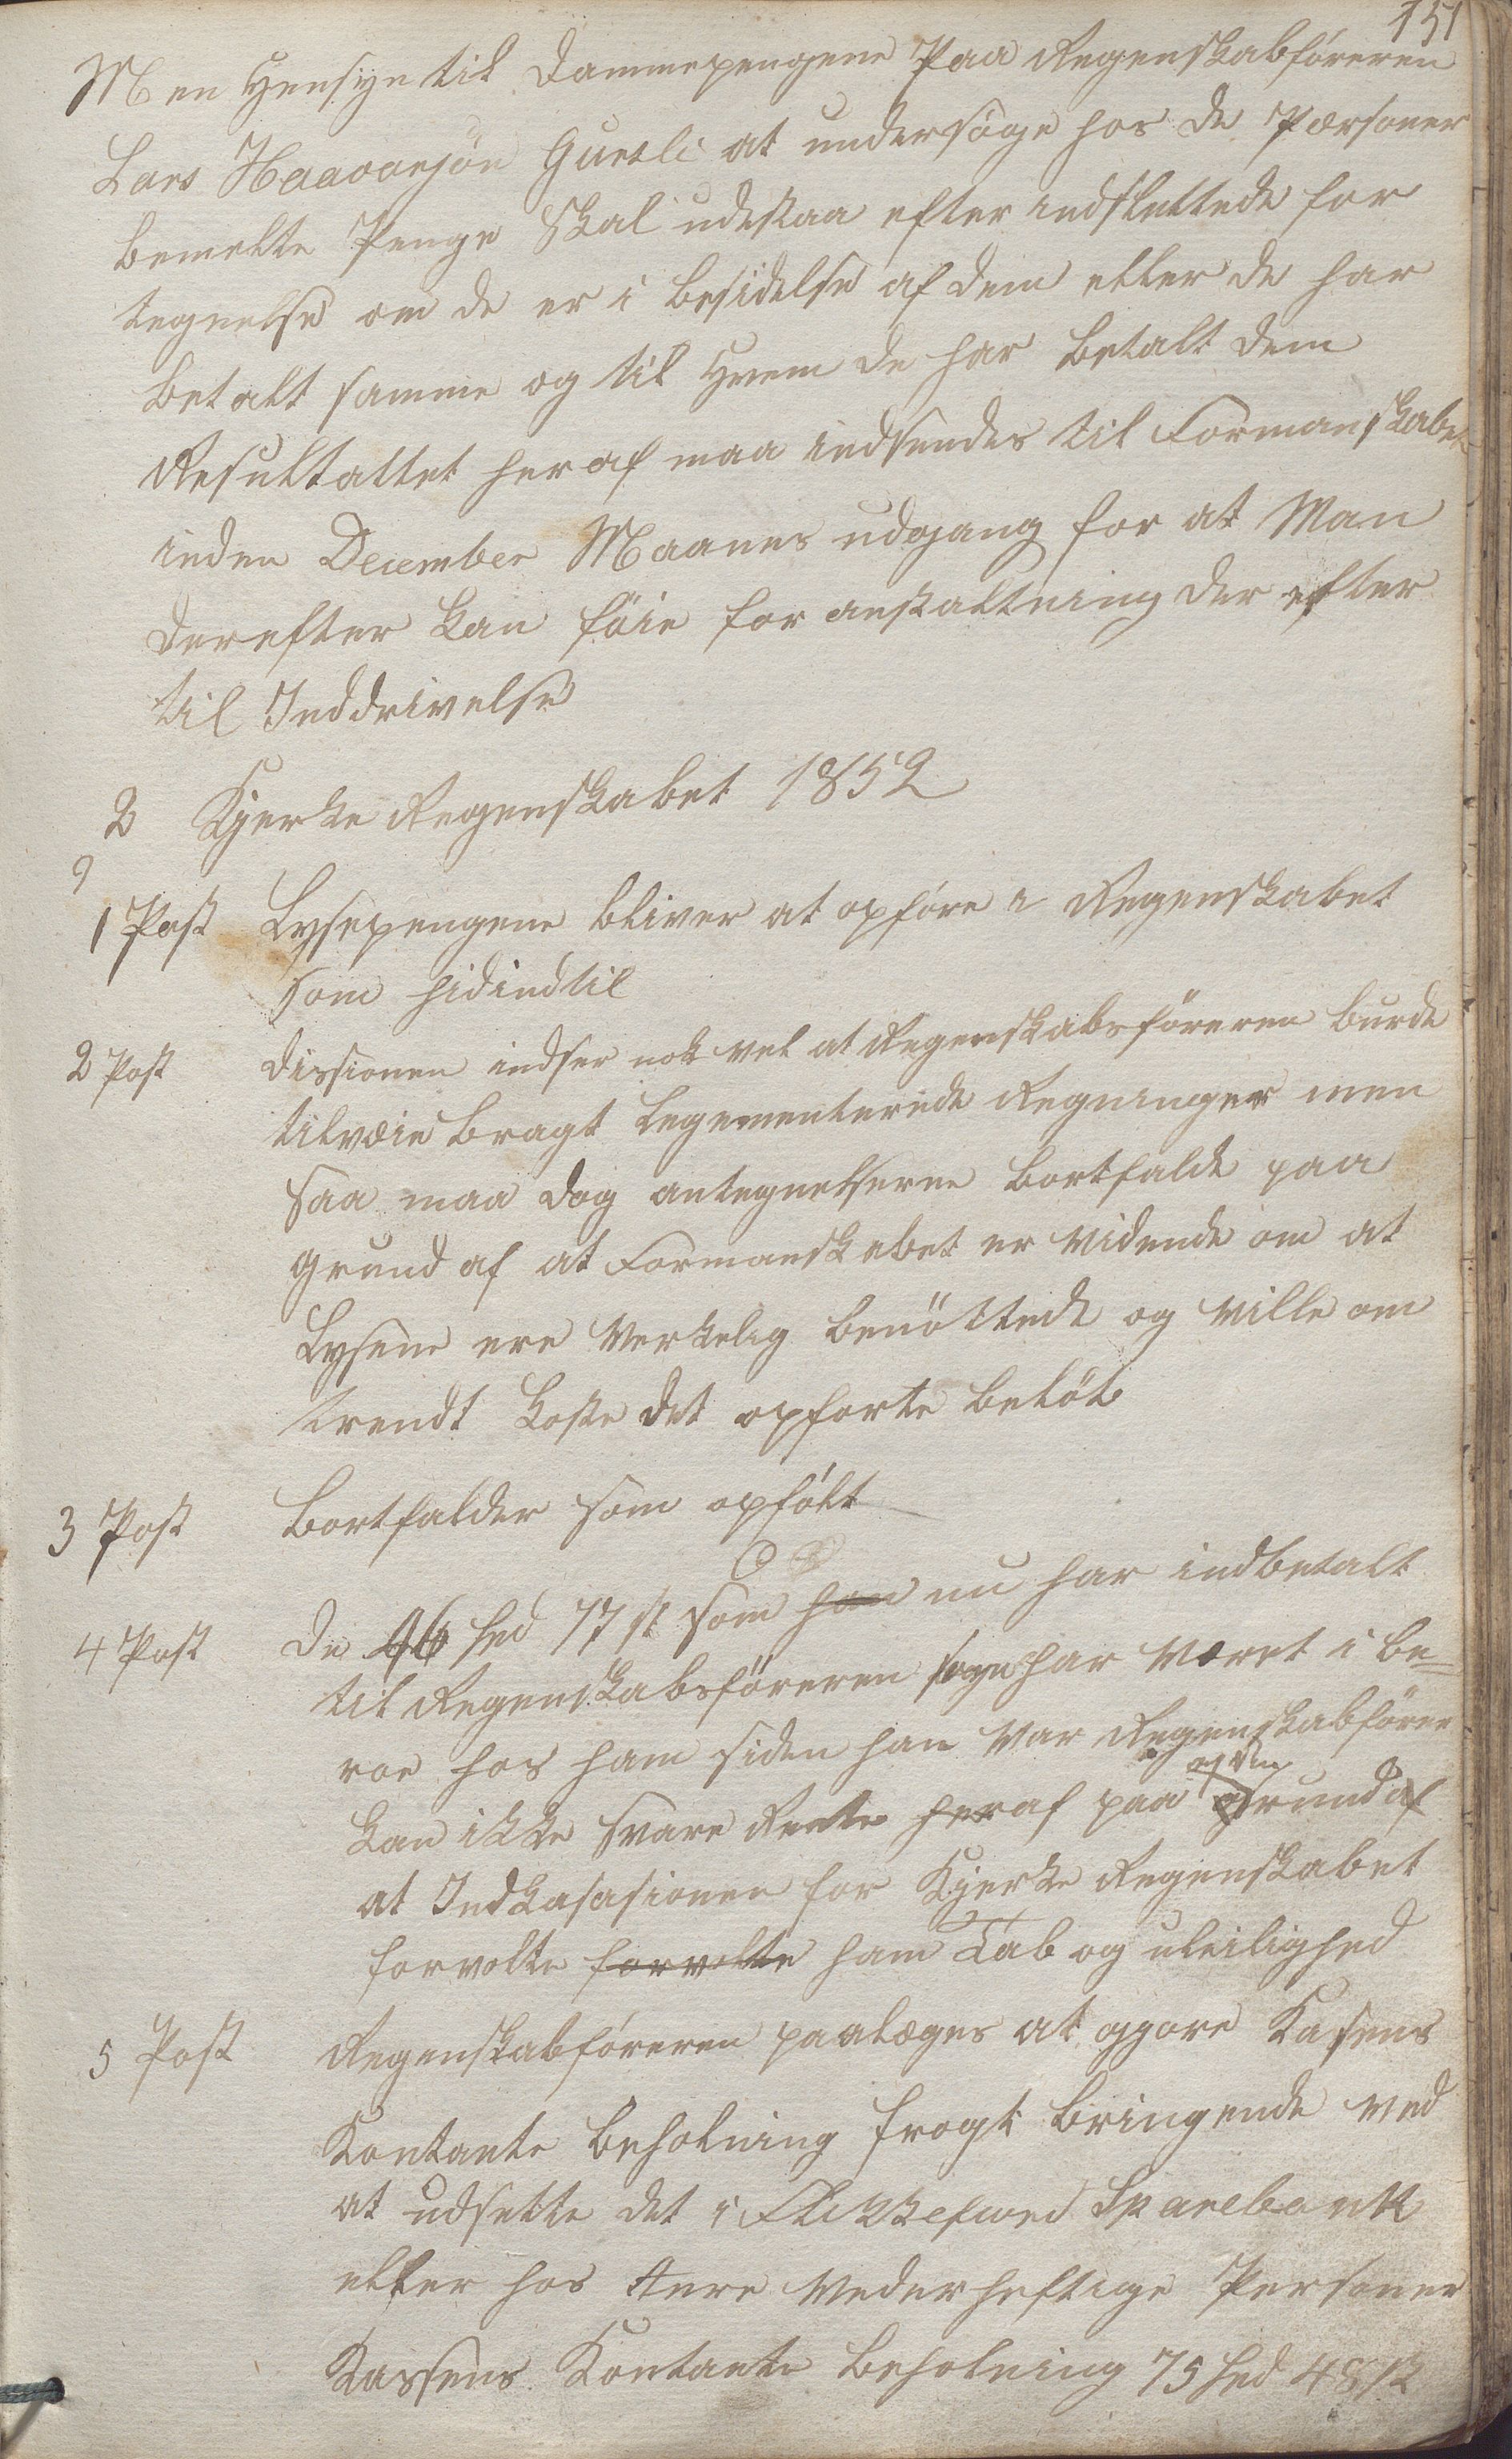 151
Men Hensyn til Dommepengene Paa Regenskabföreren
Lars Haavarsön Guesli at undersöge hos de Pærsoner
bemelte Penge Skal udestaa efter indstluttede for
tegnelse om de er i besidelse af dem eller de har
betalt samme og til Hvem de har betalt dem
Resultattet heraf maa indsendes til Formanskabet
inden December Maanes udgang for at Man
derefter kan föie foranstaltning der efter
til Inddrivelse
2 Kjerke Regenskabet 1852
1 Post Lysepengene bliver at opföre i Regenskabet
som hidindtil
2 Post Dissionen indser nok vel at Regenskabsföreren burde
tilveie bragt legementerede Regninger men
saa maa dog antegnelserne bortfalde paa
grund af at Formanskabet er vidende om at
Lysene ere Verkelig benöttede og ville om
trendt koste det opforte belöb
3 Post Bortfalder som opfölt
4 Post De 46 Spd 77 s som han nu har indbetalt
til Regenskabsföreren har været i be=
roe hos ham siden han Var Regenskabförer
kan ikke svare Rente heraf paa grund af
at Indkasasionen for Kjerke Regenskabet
forvolte forvolte ham Tab og uleilighed
5 Post Regenskabföreren paalæges at gjore Kasens
Kontante beholning frogt bringende ved
at udsette det i Flekkefiord Sparebank
eller hos Anre Vederheftige Personer
Kassens Kontante beholning 75 Spd 48 s